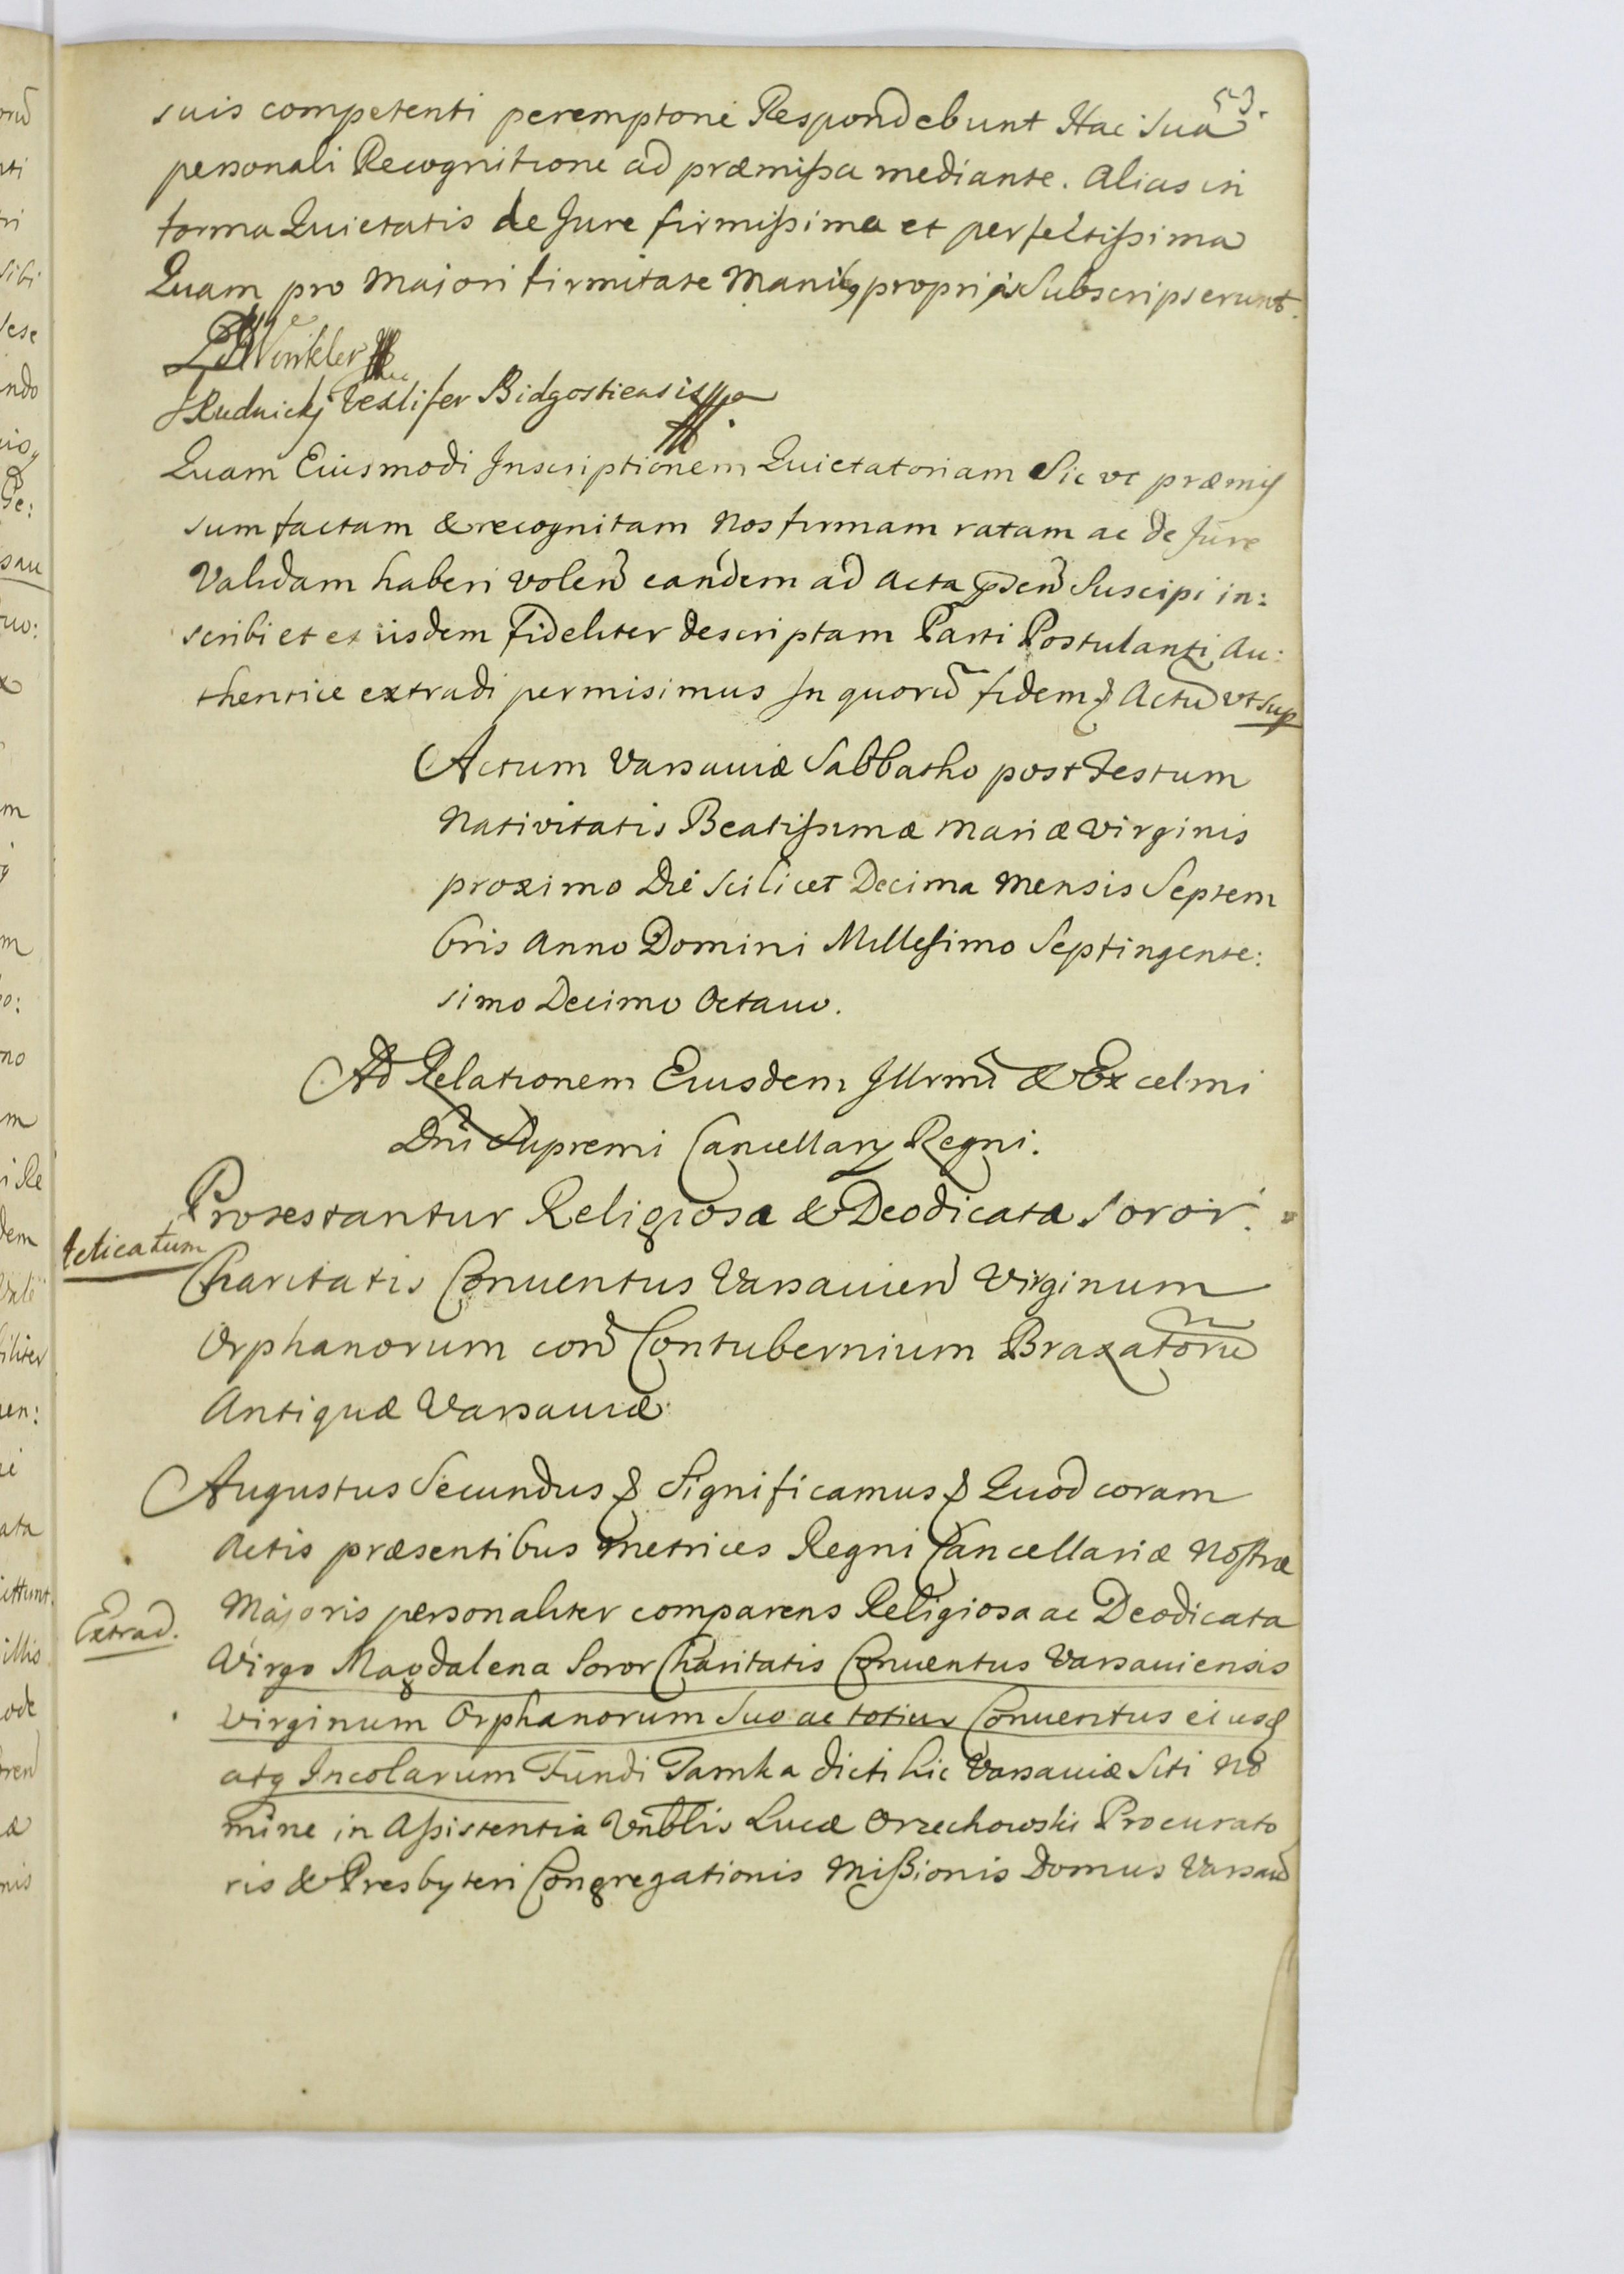 53.
suis competenti peremptorie Respondebunt Hac sua
personali Recognitione ad præmissa mediante. Alias in
forma Quietatis de Jure firmissima et perfectissima
Quam pro Majori firmitate Manibq propriis Subscripserunt.
Winkler
JRudnickj Vexlifer Bidgostiensis mp
Quam Eiusmodi Inscriptionem Quietatoriam Sic vt præmis
sum factam & recognitam Nos firmam ratam ac de Jure
Validam haberi volen̄ eandem ad Acta p̄sen̄ Suscipi in:
scribi et ex iisdem fideliter descriptam Parti Postulanti Au:
thentice extradi permisimus In quorū fidem & Actū vt sup
Actum Varsauiæ Sabbatho post Festum
Nativitatis Beatissimæ Mariæ Virginis
proximo Die scilicet Decima Mensis Septem
bris Anno Domini Millesimo Septingente:
simo Decimo Octauo.
Ad Relationem Eiusdem Illrmi & Excelmi
Dni Supremi Cancellarij Regni.
Protestantur Religiosa & Deodicata Soror:
Acticatum
Charitatis Conuentus Varsauien̄ Virginum
Orphanorum con̄ Contubernium Braxatorū
Antiquæ Varsauiæ
Augustus Secundus & Significamus & Quod coram
Actis præsentibus Metrices Regni Cancellariæ Nostræ
Majoris personaliter comparens Religiosa ac Deodicata
Extrad.
Virgo Magdalena Soror Charitatis Conuentus Varsauiensis
Virginum Orphanorum Suo ac totius Conuentus eiusd
atq Incolarum Fundi Tamka dicti hic Varsauiæ Siti No
mine in Assistentia Vnblis Lucæ Orzechowski Procurato
ris & Presbyteri Congregationis Missionis Domus Varsau̅